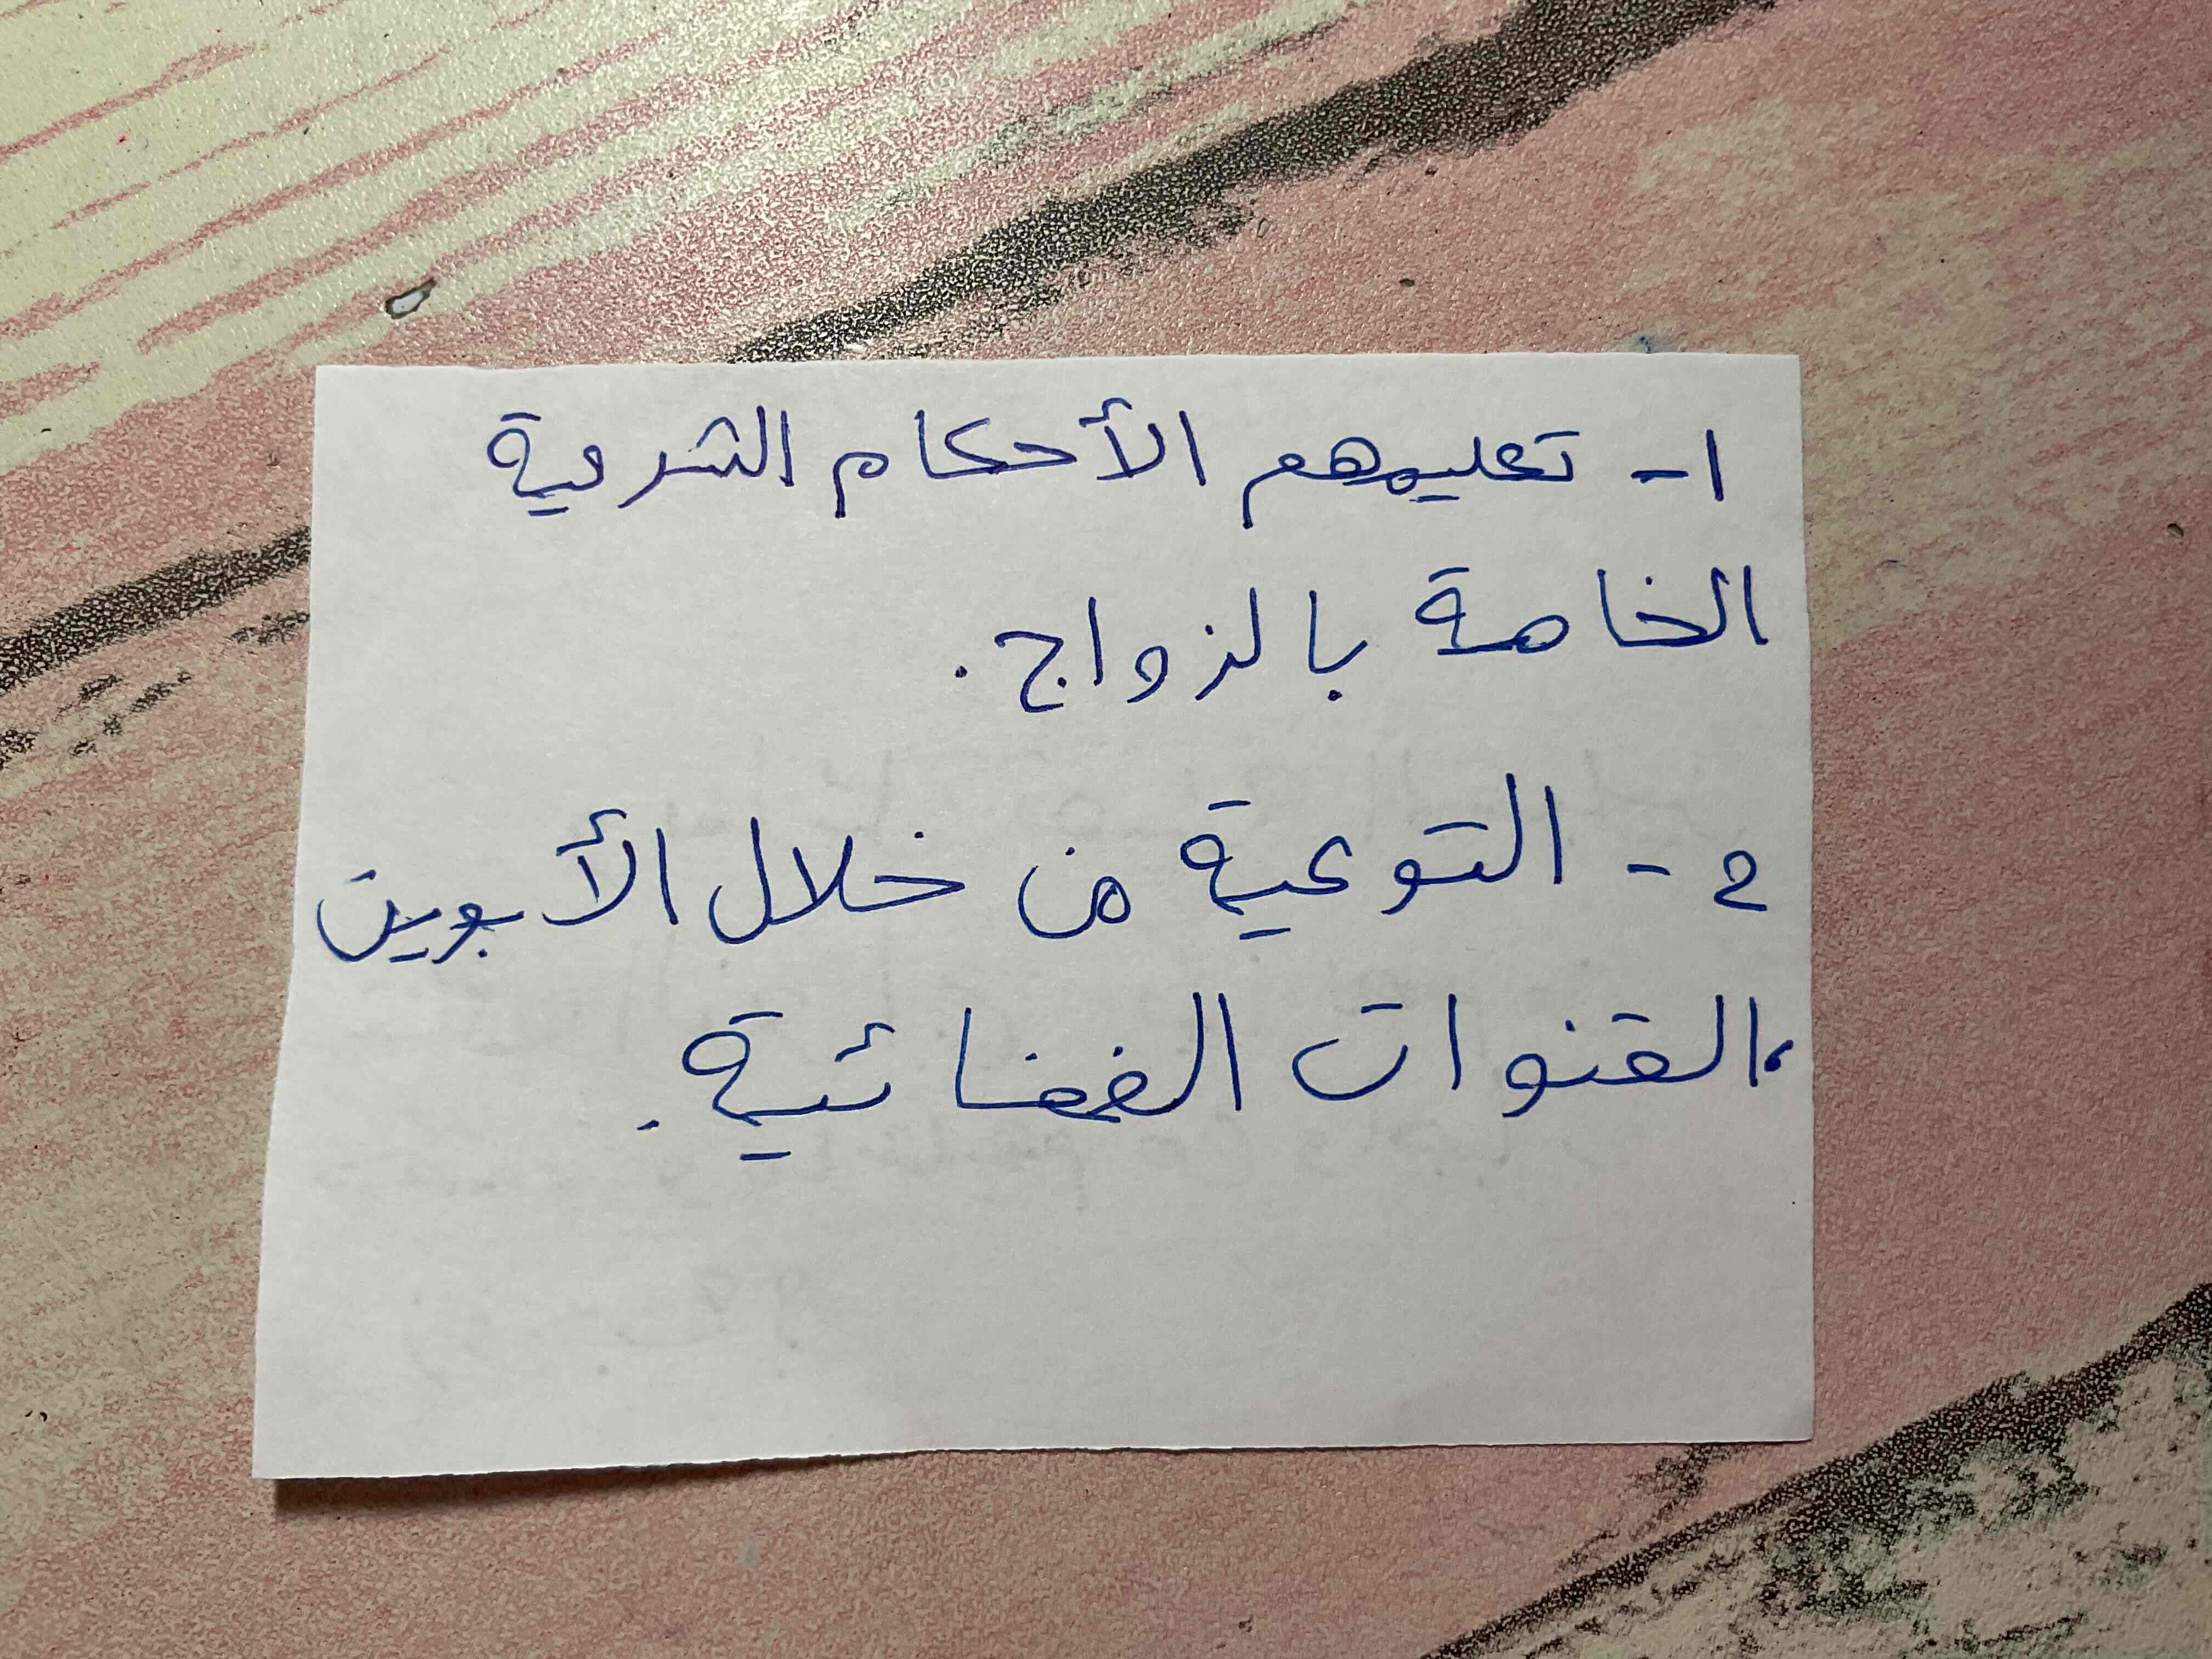 1- تعليمهم الأحكام الشرعية
الخاصة بالزواج.
2- التوعية من خلال الأبوين
،القنوات الفضائية.